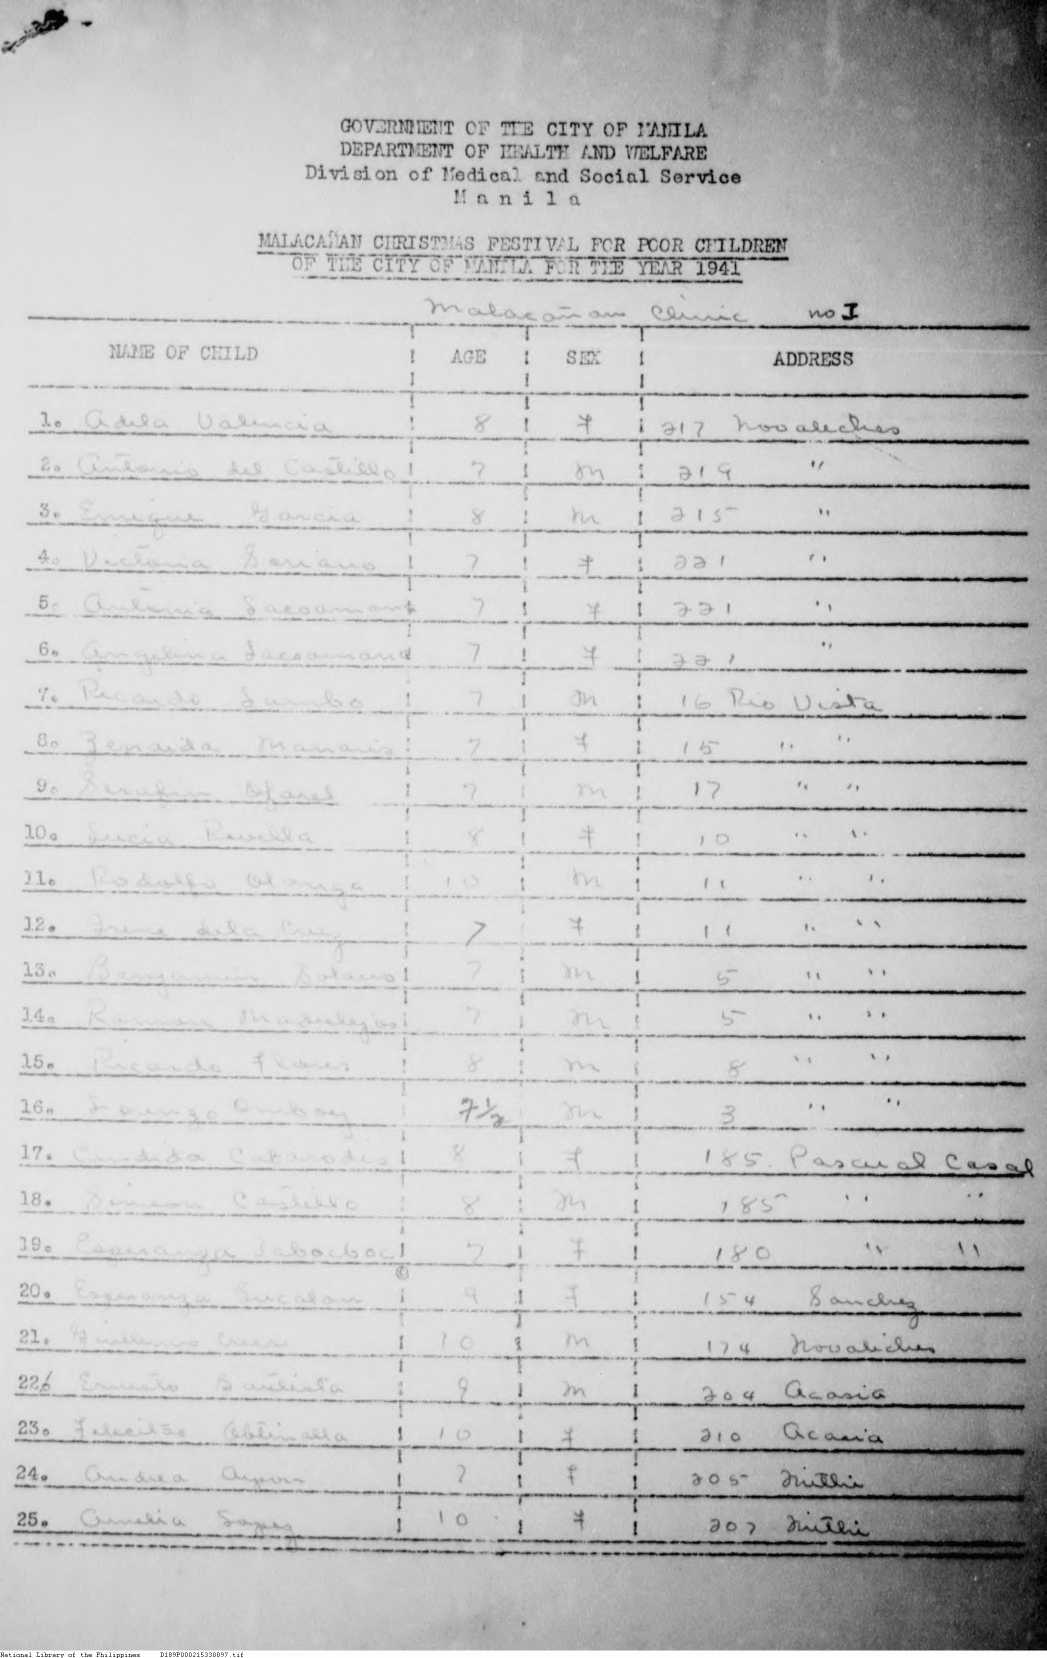 GOVERNMENT OF THE CITY OF MANILA
DEPARTMENT OF HEALTH AND WELFARE
Division of Medical and Social Service
M a n i l a
MALACAÑAN CHRISTMAS FESTIVAL FOR POOR CHILDREN
OF THE CITY OF MANILA FOR THE YEAR 1941
Malacañan Clinic no I
NAME OF CHILD AGE SEX ADDRESS
1. Adela Valencia 8 F 217 Novaliches
2. Antonio del Castillo 7 M 219 "
3. Enrique Garcia 8 M 215 "
4. Victoria Soriano 7 F 221 "
5. Antonia 7 F 221 "
6. Angelina 7 F 221 "
7. Ricardo 7 M 16 Rio Vista
8. Zenaida 7 F 15 " "
9. Serafin 7 M 17 " "
10. Lucia 8 F 10 " "
11. Rodolfo 10 M 11 " "
12. Irene dela Cruz 7 F 11 " "
13. Benjamin 7 M 5 " "
14. Ramon 7 M 5 " "
15. Ricardo Flores 8 M 8 " "
16. 7½ M 3 " "
17. Candida 8 F 185 Pascual Casal
18. Simeon Castillo 8 M 185 " "
19. Esperanza 7 F 180 " "
20. Esperanza 9 F 154 Sanchez
21. 10 M 174 Novaliches
22. Ernesto Bautista 9 M 204 Acasia
23. 10 F 210 Acacia
24. Andrea 7 F 205
25. Amelia Lopez 10 F 207
National Library of the Philippines D189P000215330897.tif